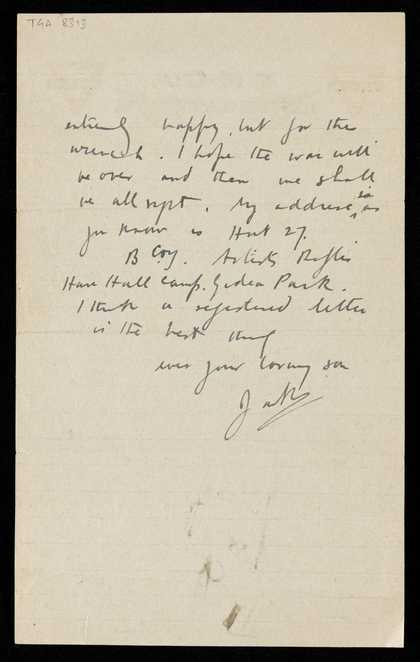 TGA 8313
entirely happy, but for the
wrench. I hope the war will
be over and then we shall
be all right. My address, so as
you know is Hut 27.
B Coy. Artists Rifles
Hare Hall Camp. Gidea Park.
I think a registered letter
is the best thing
ever your loving son
Jack